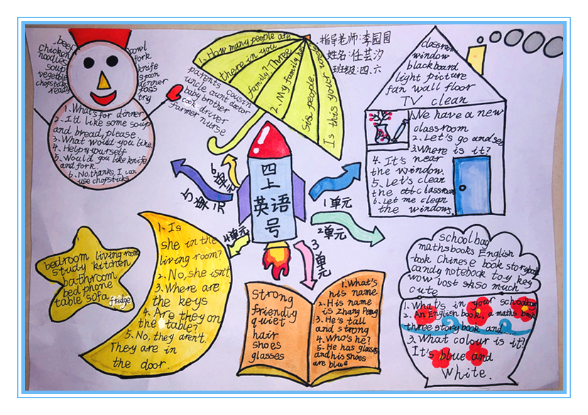 beef
chicken
noodles
soup
vegetable
chopsticks
bowl
fork
knife
spoon
dinner
ready
try
1. What's for dinner?
2. I'd like some soup
and bread, please.
3. What would you like
4. Help yourself
5. Would you like knife
and fork
6. No, thanks. I can
use chopsticks
1. How many people are
there in you
family? Three
2. My family
Six people
Is this your
parents cousin
uncle aunt doctor
baby brother
cook driver
farmer nurse
指导老师:李园园
姓名:任芸汐
班级:四、六
classroom
window
blackboard
light picture
fan wall floor
TV clean
1. We have a new
classroom
2. Let's go and see
3. Where is it?
4. It's near
the window.
5. Let's clean
the classroom
6. Let me clean
the windows.
四上
英语
号
1单元
2单元
3
单元
4单元
5单元
6
bedroom living room
study kitchen
bathroom
bed phone
table sofa
fridge
1. Is
she in the
living room?
2. No, she isn't
3. Where are
the keys
4. Are they on
the table?
5. No, they aren't.
They are in
the door.
strong
friendly
quiet
hair
shoes
glasses
1. What's
his name
2. His name
is Zhang Peng
3. He's tall
and strong
4. Who's he?
5. He has glasses
and his shoes
are blue
schoolbag
mathsbooks English
book Chinese book storybook
candy notebook toy key
wow lost so much
cute
1. What's in your schoolbag
2. An English book, a maths book
three storybook and
3. What colour is it?
It's blue and
White.